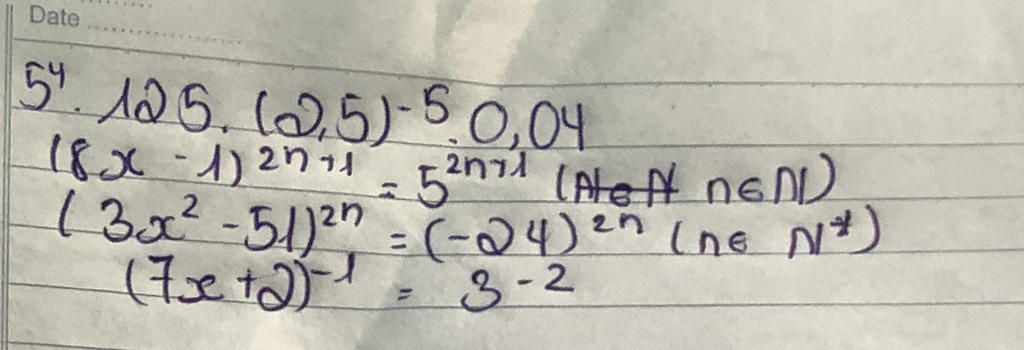 Date
5⁴. 125. (2,5)⁻⁵. 0,04
(8x - 1)²ⁿ⁺¹ = 5²ⁿ⁺¹ (n∈N)
(3x² - 51)²ⁿ = (-24)²ⁿ (n∈ N*)
(7x + 2)⁻¹ = 3⁻²